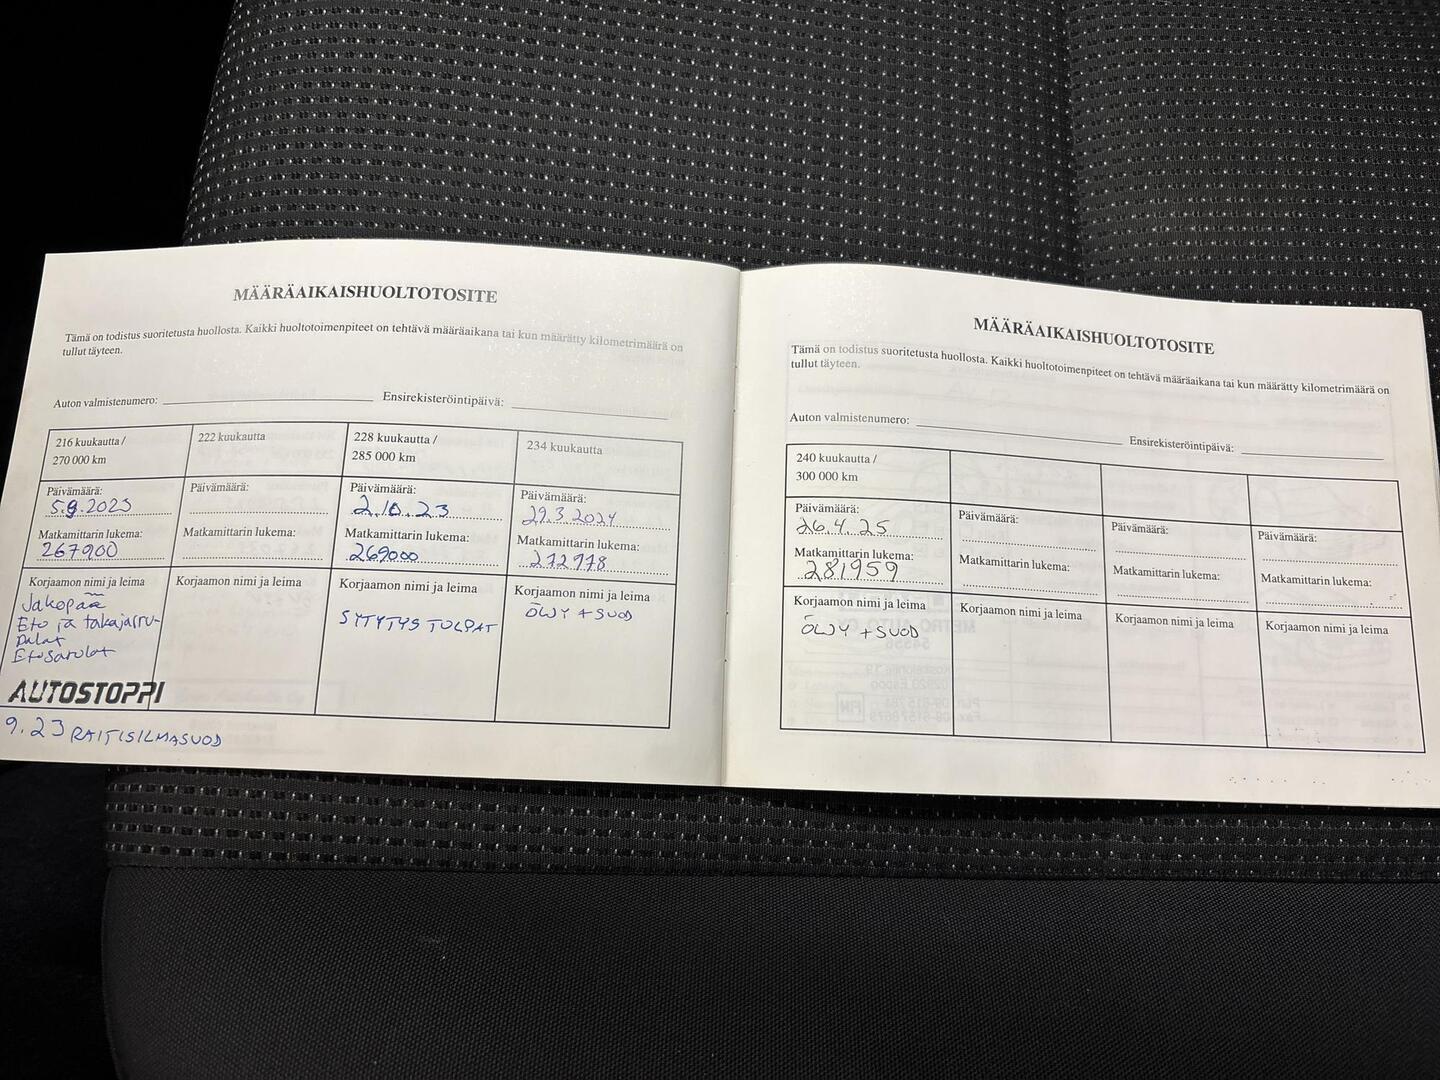 MÄÄRÄAIKAISHUOLTOTOSITE
Tämä on todistus suoritetusta huollosta. Kaikki huoltotoimenpiteet on tehtävä määräaikana tai kun määrätty kilometrimäärä on
tullut täyteen.
Auton valmistenumero: Ensirekisteröintipäivä:
216 kuukautta /
270 000 km
222 kuukautta
228 kuukautta /
285 000 km
234 kuukautta
Päivämäärä:
5.9.2023
Päivämäärä:
Päivämäärä:
2.10.23
Päivämäärä:
29.3.2024
Matkamittarin lukema:
267900
Matkamittarin lukema:
Matkamittarin lukema:
269000
Matkamittarin lukema:
272978
Korjaamon nimi ja leima
Jakopää
Etu ja takajarru-
palat
Etusatulat
AUTOSTOPPI
Korjaamon nimi ja leima
Korjaamon nimi ja leima
SYTYTYS TULPAT
Korjaamon nimi ja leima
ÖLJY + SUOD
9.23 RAITISILMASUOD
MÄÄRÄAIKAISHUOLTOTOSITE
Tämä on todistus suoritetusta huollosta. Kaikki huoltotoimenpiteet on tehtävä määräaikana tai kun määrätty kilometrimäärä on
tullut täyteen.
Auton valmistenumero: Ensirekisteröintipäivä:
240 kuukautta /
300 000 km
Päivämäärä:
26.4.25
Päivämäärä:
Päivämäärä:
Päivämäärä:
Matkamittarin lukema:
281959
Matkamittarin lukema:
Matkamittarin lukema:
Matkamittarin lukema:
Korjaamon nimi ja leima
ÖLJY + SUOD
Korjaamon nimi ja leima
Korjaamon nimi ja leima
Korjaamon nimi ja leima